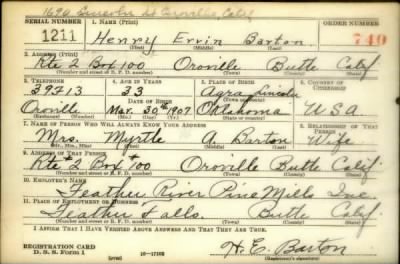 Oroville Calif
SERIAL NUMBER 1. NAME (Print) ORDER NUMBER
1211 Henry Ervin Barton 740
(First) (Middle) (Last)
2. ADDRESS (Print)
Rte 2 Box 100 Oroville Butte Calif
(Number and street or R. F. D. number) (Town) (County) (State)
3. TELEPHONE 4. AGE IN YEARS 5. PLACE OF BIRTH 6. COUNTRY OF CITIZENSHIP
39F13 33 Agra Lincoln
Oroville DATE OF BIRTH
Mar. 30th 1907 Oklahoma U S A
(Exchange) (Number) (Mo.) (Day) (Yr.) (State or country)
7. NAME OF PERSON WHO WILL ALWAYS KNOW YOUR ADDRESS 8. RELATIONSHIP OF THAT PERSON
Mrs. Myrtle A Barton Wife
(Mr., Mrs., Miss) (First) (Middle) (Last)
9. ADDRESS OF THAT PERSON
Rte #2 Box #100 Oroville Butte Calif.
(Number and street or R. F. D. number) (Town) (County) (State)
10. EMPLOYER'S NAME
Feather River Pine Mills Inc.
11. PLACE OF EMPLOYMENT OR BUSINESS
Feather Falls. Butte Calif.
(Number and street or R. F. D. number) (Town) (County) (State)
I AFFIRM THAT I HAVE VERIFIED ABOVE ANSWERS AND THAT THEY ARE TRUE.
REGISTRATION CARD
D. S. S. Form 1 16—17105 H. E. Barton